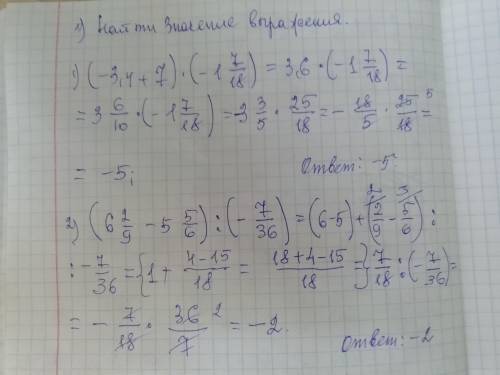 1) Найти значение выражения.
1) (-3,4+7)·(-1 7/18) = 3,6·(-1 7/18) =
= 3 6/10·(-1 7/18) = -3 3/5·25/18 = -18/5·25/18 5 =
= -5; Ответ: -5.
2) (6 2/9 - 5 5/6):(-7/36) = (6-5)+(2 2/9 - 3 5/6):
:-7/36 = {1 + 4-15/18 = 18+4-15/18 =} 7/18:(-7/36) =
= -7/18·36 2/7 = -2. Ответ: -2